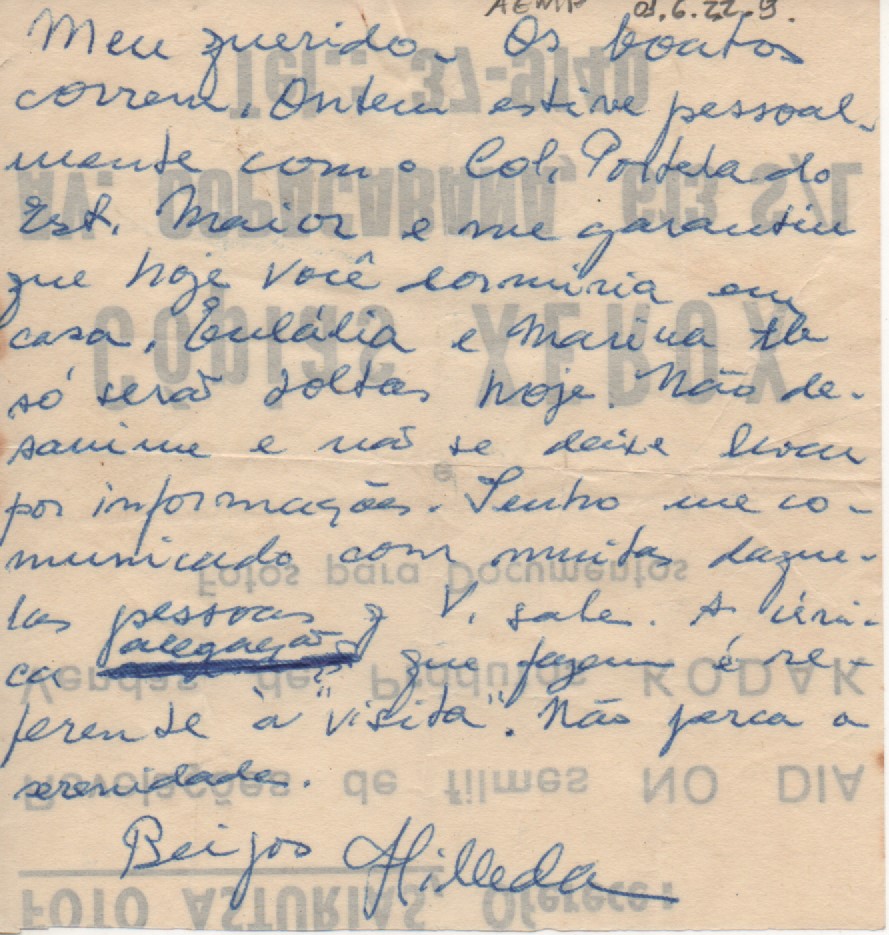 AEMP 01.6.22.9.
Meu querido – Os boatos
correm. Ontem estive pessoal-
mente com o Col. Portela do
Est. Maior e me garantiu
que hoje você dormiria em
casa. Eulália e Marina tb
só serão soltas hoje. Não de-
sanime e não se deixe levar
por informações. Tenho me co-
municado com muitas daque-
las pessoas q V. sabe. A úni-
ca alegação que fazem é re-
ferente à "visita". Não perca a
serenidade.
Beijos Hilleda
FOTO ASTURIAS Oferece:
Revelações de filmes NO DIA
Vendas de Produtos KODAK
Fotos para Documentos
e
Cópias XEROX
AV. COPACABANA, 613 S/L
Tel.: 37-9140